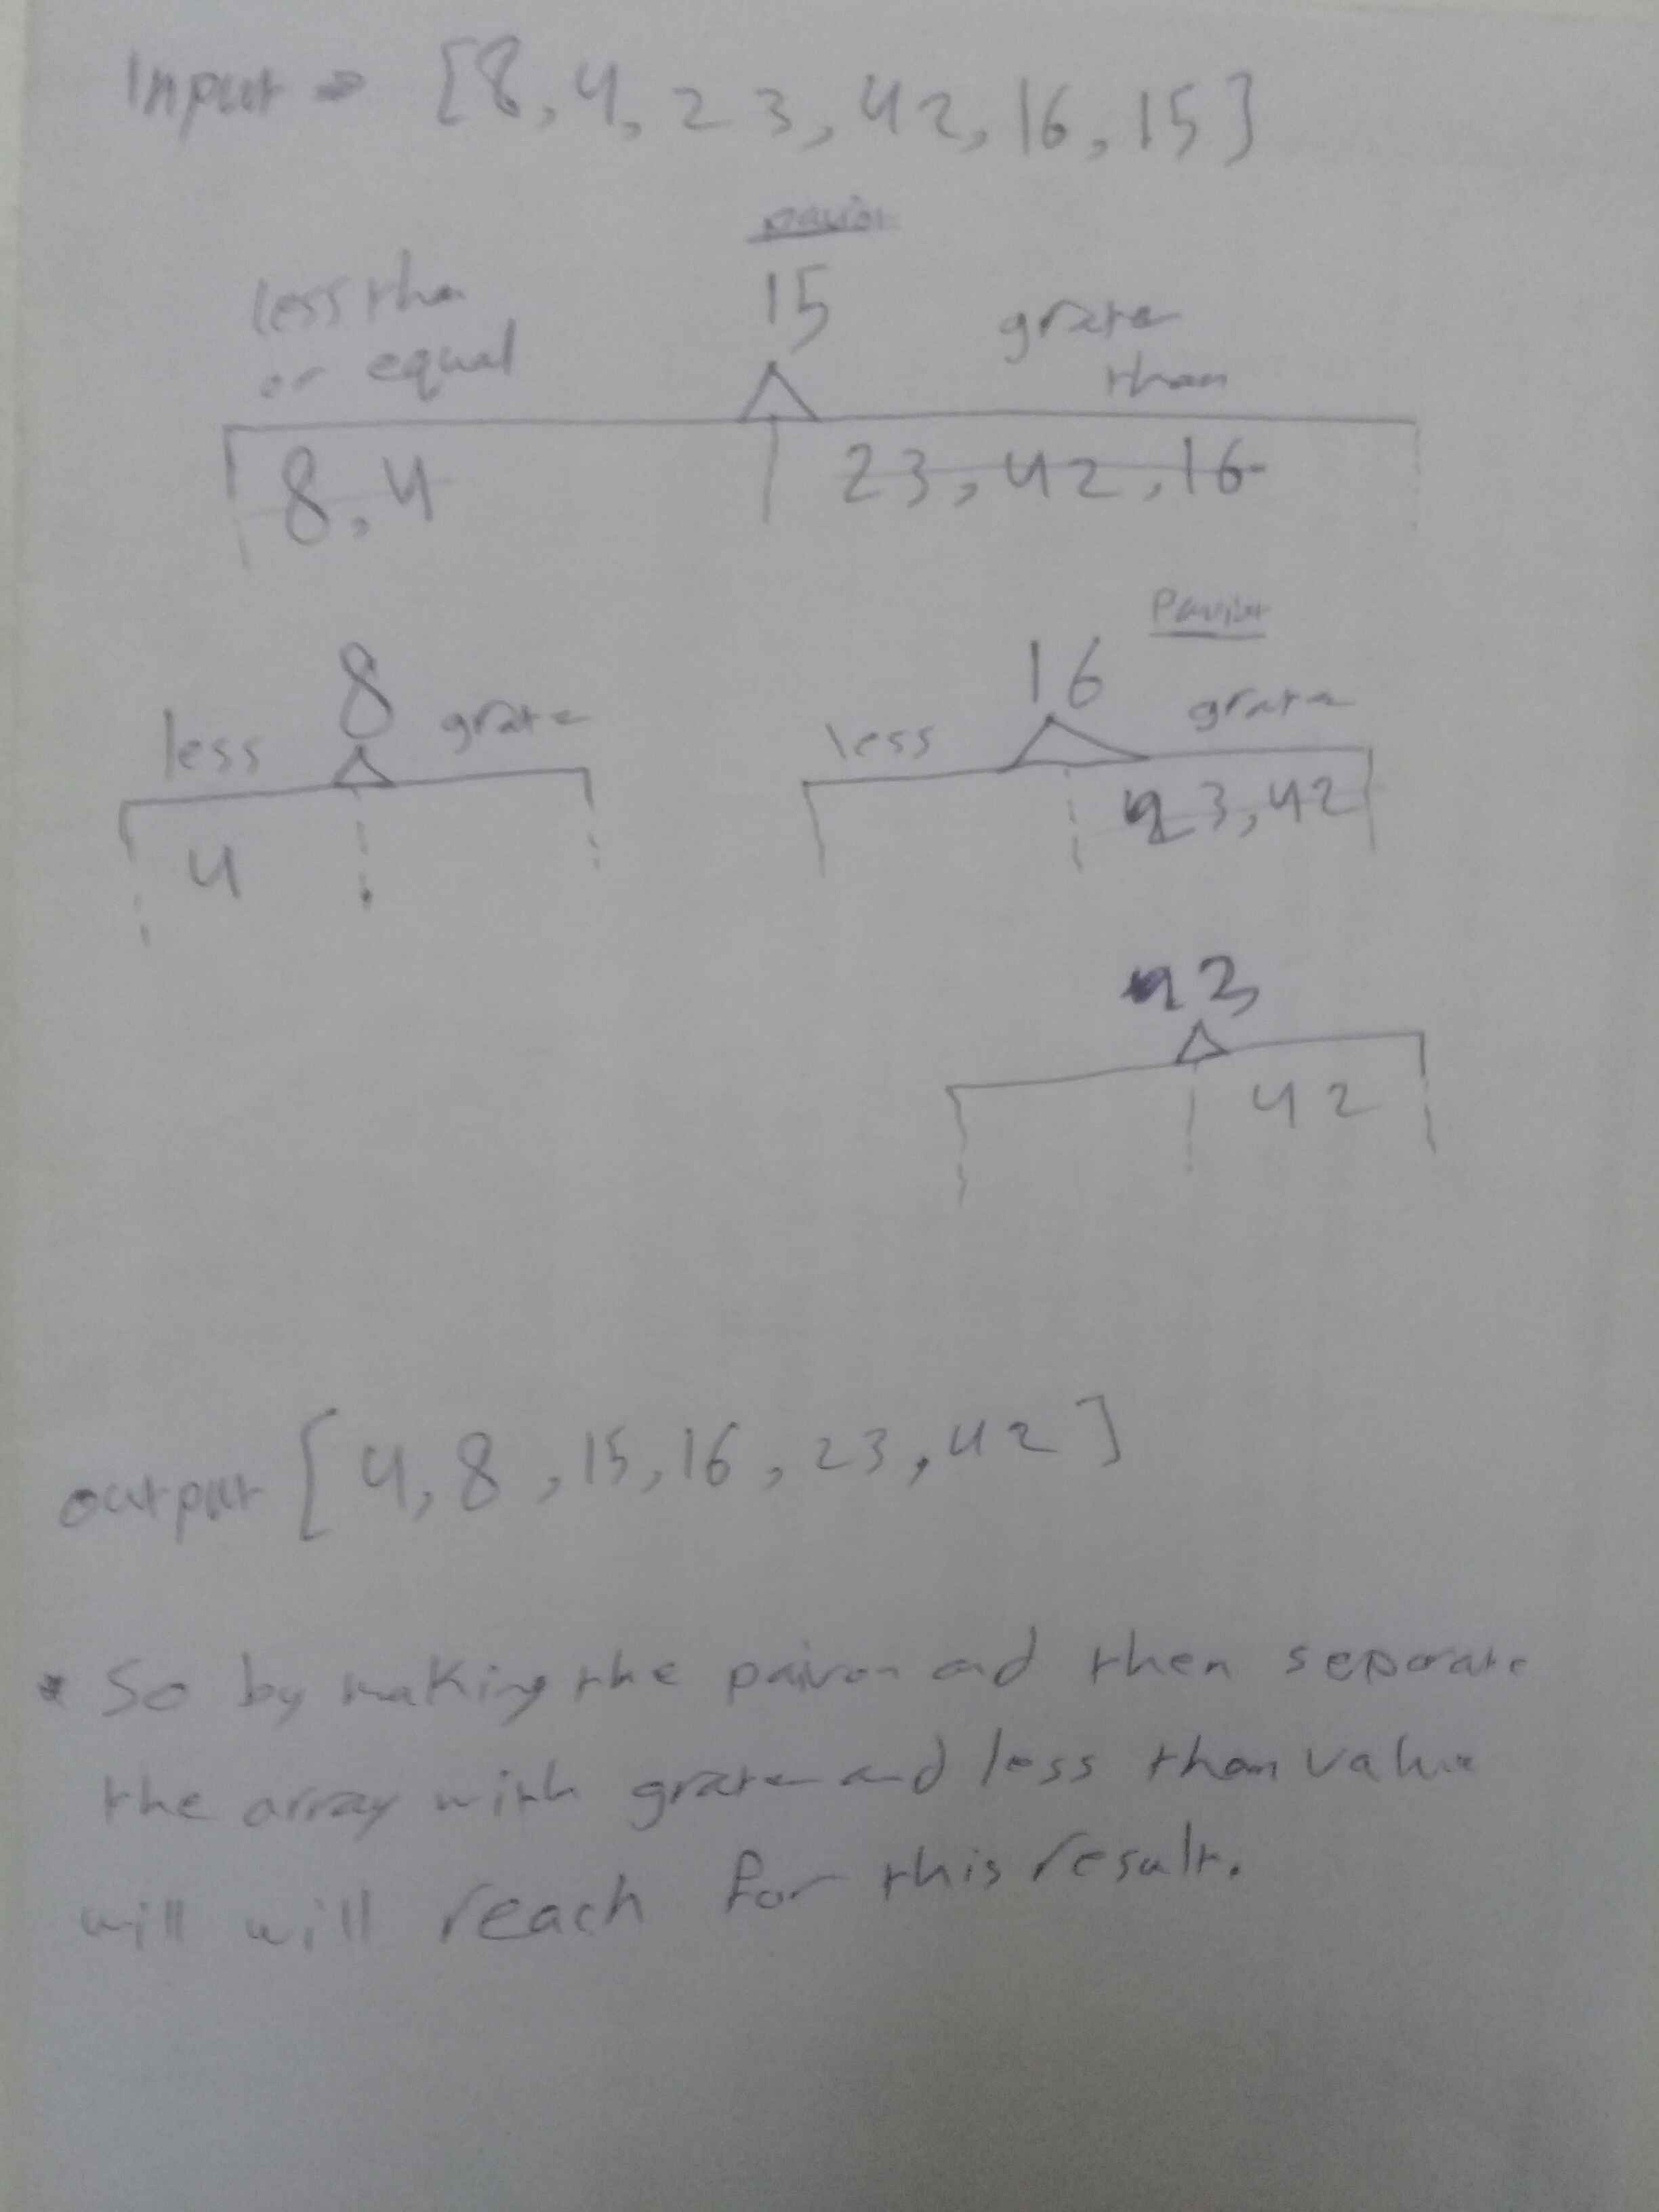 Input ⇒ [8, 4, 23, 42, 16, 15]
paviot
15
less than
or equal
grate
than
8, 4
23, 42, 16
Paviot
8
less
grate
4
16
less
grate
23, 42
23
42
output [4, 8, 15, 16, 23, 42]
* So by making the and then separate
the array with grate and less than value
will will reach for this result.